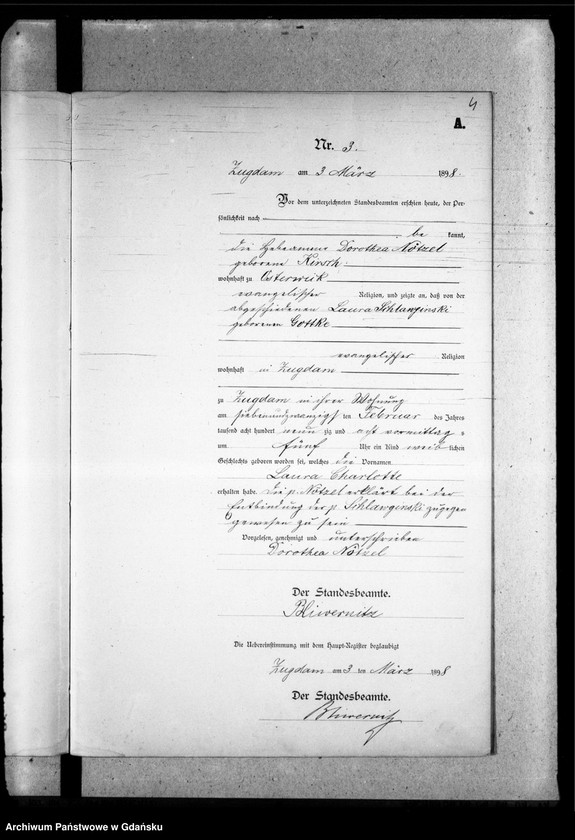 4
A.
Nr. 3.
Zugdam am 3 März 1898.
Vor dem unterzeichneten Standesbeamten erschien heute, der Per-
sönlichkeit nach
be kannt,
die Hebeamme Dorothea Nötzel
geborene Kirsch
wohnhaft zu Osterwick
evangelischer Religion, und zeigte an, daß von der
abgeschiedenen Laura Schlawjinski
geborenen Gottke
evangelischer Religion
wohnhaft in Zugdam
zu Zugdam in ihrer Wohnung
am siebenundzwanzigsten Februar des Jahres
tausend acht hundert neun zig und acht vormittag s
um fünf Uhr ein Kind weib lichen
Geschlechts geboren worden sei, welches die Vornamen
Laura Charlotte
erhalten habe. Die p. Nötzel erklärt bei der
Entbindung der p. Schlawjinski zugegen
gewesen zu sein
Vorgelesen, genehmigt und unterschrieben
Dorothea Nötzel
Der Standesbeamte.
Bliwernitz
Die Uebereinstimmung mit dem Haupt-Register beglaubigt
Zugdam am 3 ten März 1898
Der Standesbeamte.
Bliwernitz
Archiwum Państwowe w Gdańsku